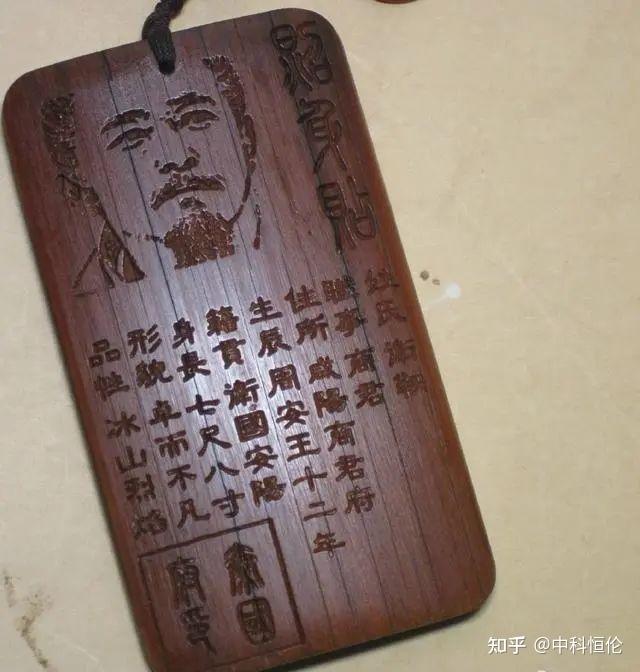 照身貼
姓氏 衛鞅
職事 商君
住所 咸陽商君府
生辰 周安王十二年
籍貫 衛國安陽
身長 七尺八寸
形貌 卓而不凡
品性 冰山烈焰
秦國
知乎 @中科恒伦